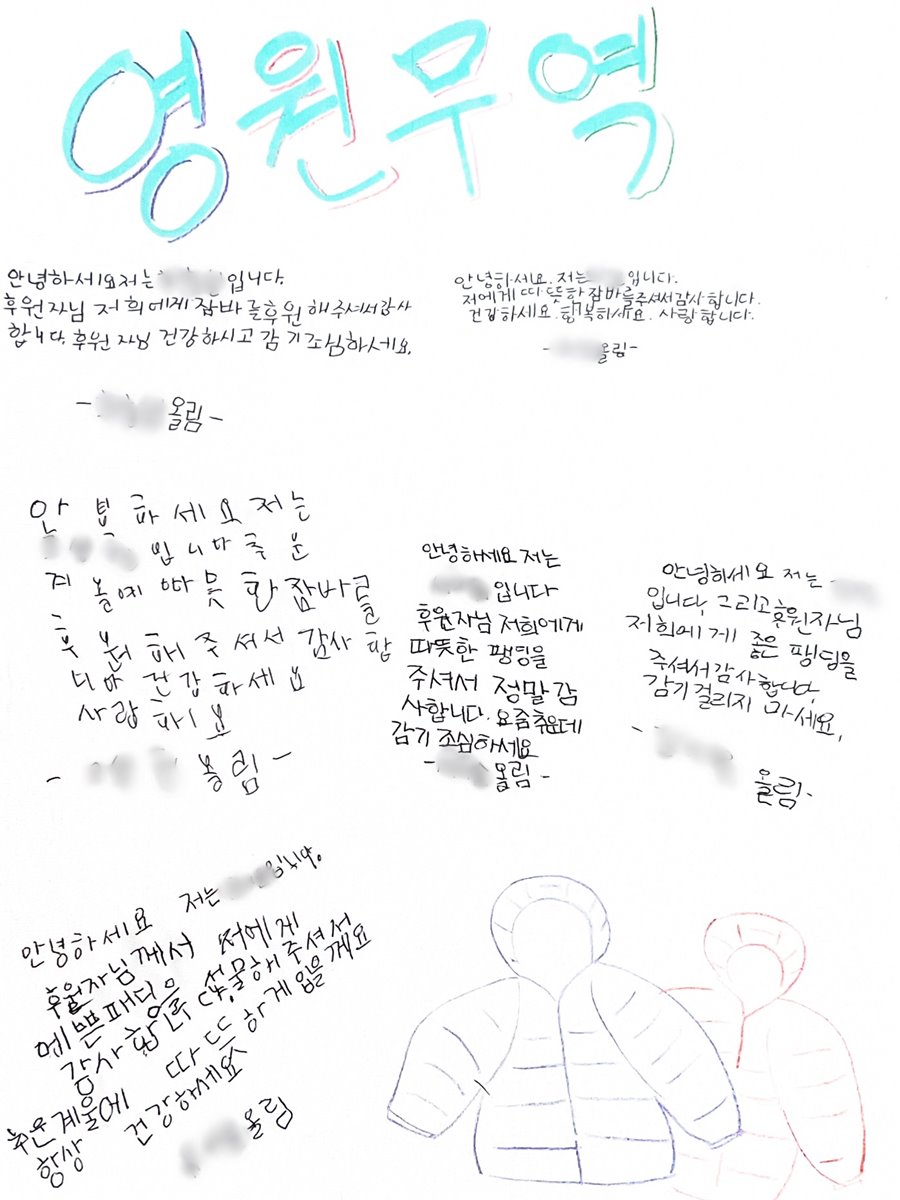 영원무역
안녕하세요 저는 입니다.
후원자님 저희에게 잠바를 후원해주셔서 감사
합니다. 후원자님 건강하시고 감기조심하세요.
- 올림 -
안녕하세요. 저는 입니다.
저에게 따뜻한 잠바를 주셔서 감사합니다.
건강하세요. 행복하세요. 사랑합니다.
- 올림 -
하세요 저는
입니다 추운
따뜻한 잠바를
후원해주셔서 감사합
니다 건강하세요
- 올림 -
안녕하세요 저는
입니다
후원자님 저희에게
따뜻한 팽딩을
주셔서 정말 감
사합니다. 요즘 추운데
감기 조심하세요
- 올림 -
안녕하세요 저는
입니다. 그리고 후원자님
저희에게 좋은 팽딩을
주셔서 감사합니다.
감기 걸리지 마세요.
- 올림 -
안녕하세요 저는 입니다.
후원자님께서 저에게
예쁜 패딩을 선물해주셔서
감사합니다
추운 계울에 따뜨하게 입을께요
항상 건강하세요
올림